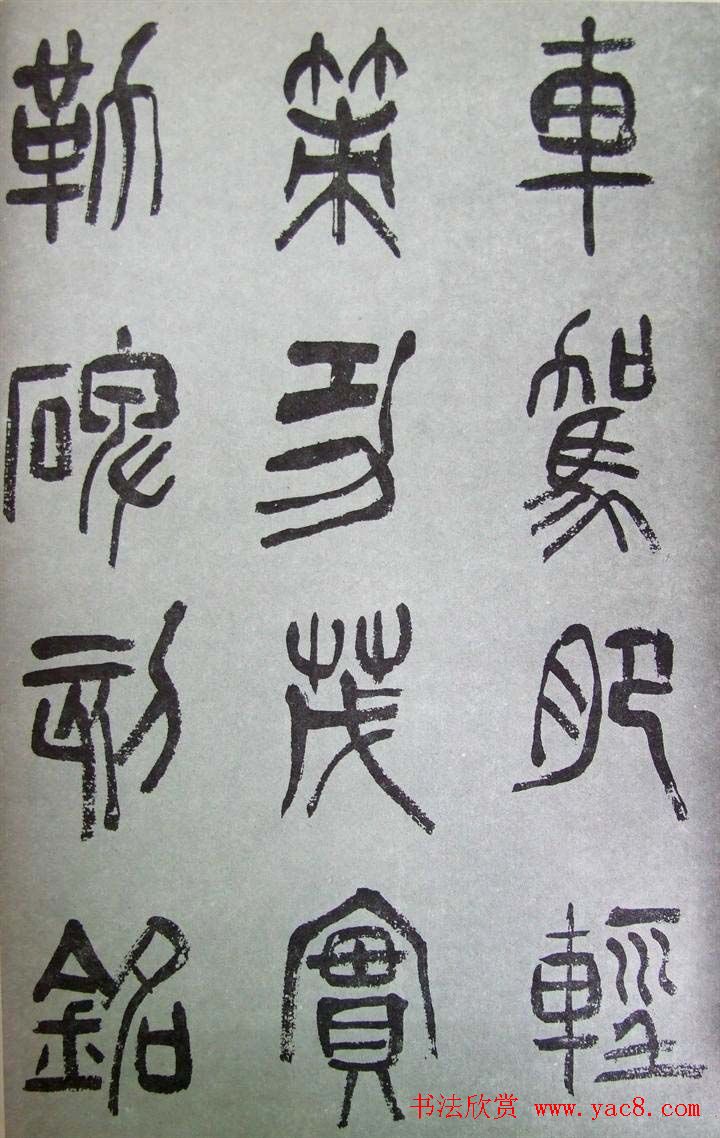 車駕肥輕
策功茂實
勒碑刻銘
书法欣赏 www.yac8.com